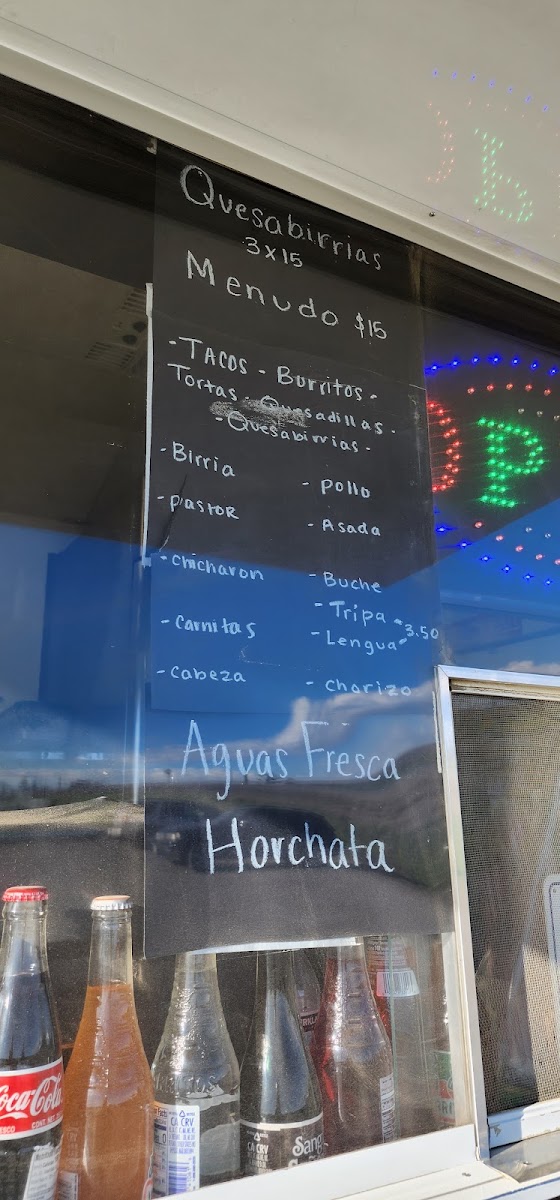 Quesabirrias
3x15
Menudo $15
- TACOS - Burritos -
Tortas - Quesadillas -
- Quesabirrias -
- Birria
- pollo
- pastor
- Asada
- chicharon
- Buche
- Tripa - 3.50
- Carnitas
- Lengua -
- cabeza
- chorizo
Aguas Fresca
Horchata
OP
Coca-Cola
CA CRV
CA CRV
Sang